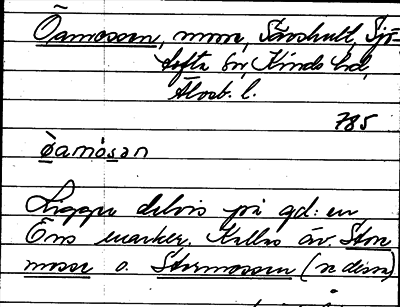 Öamossen, mosse, Sävshult, Sjö-
tofta sn, Kinds hd,
Älvsb. l.
785
òamósan
Ligger delvis på gd:en
Öns marker. Kallas äv. Stora
mosse o. Stormossen (se dessa)